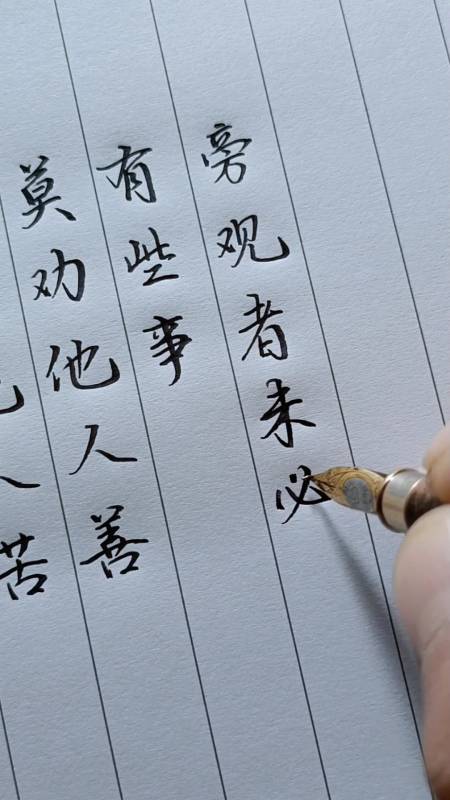 苦
莫劝他人善
有些事
旁观者未必